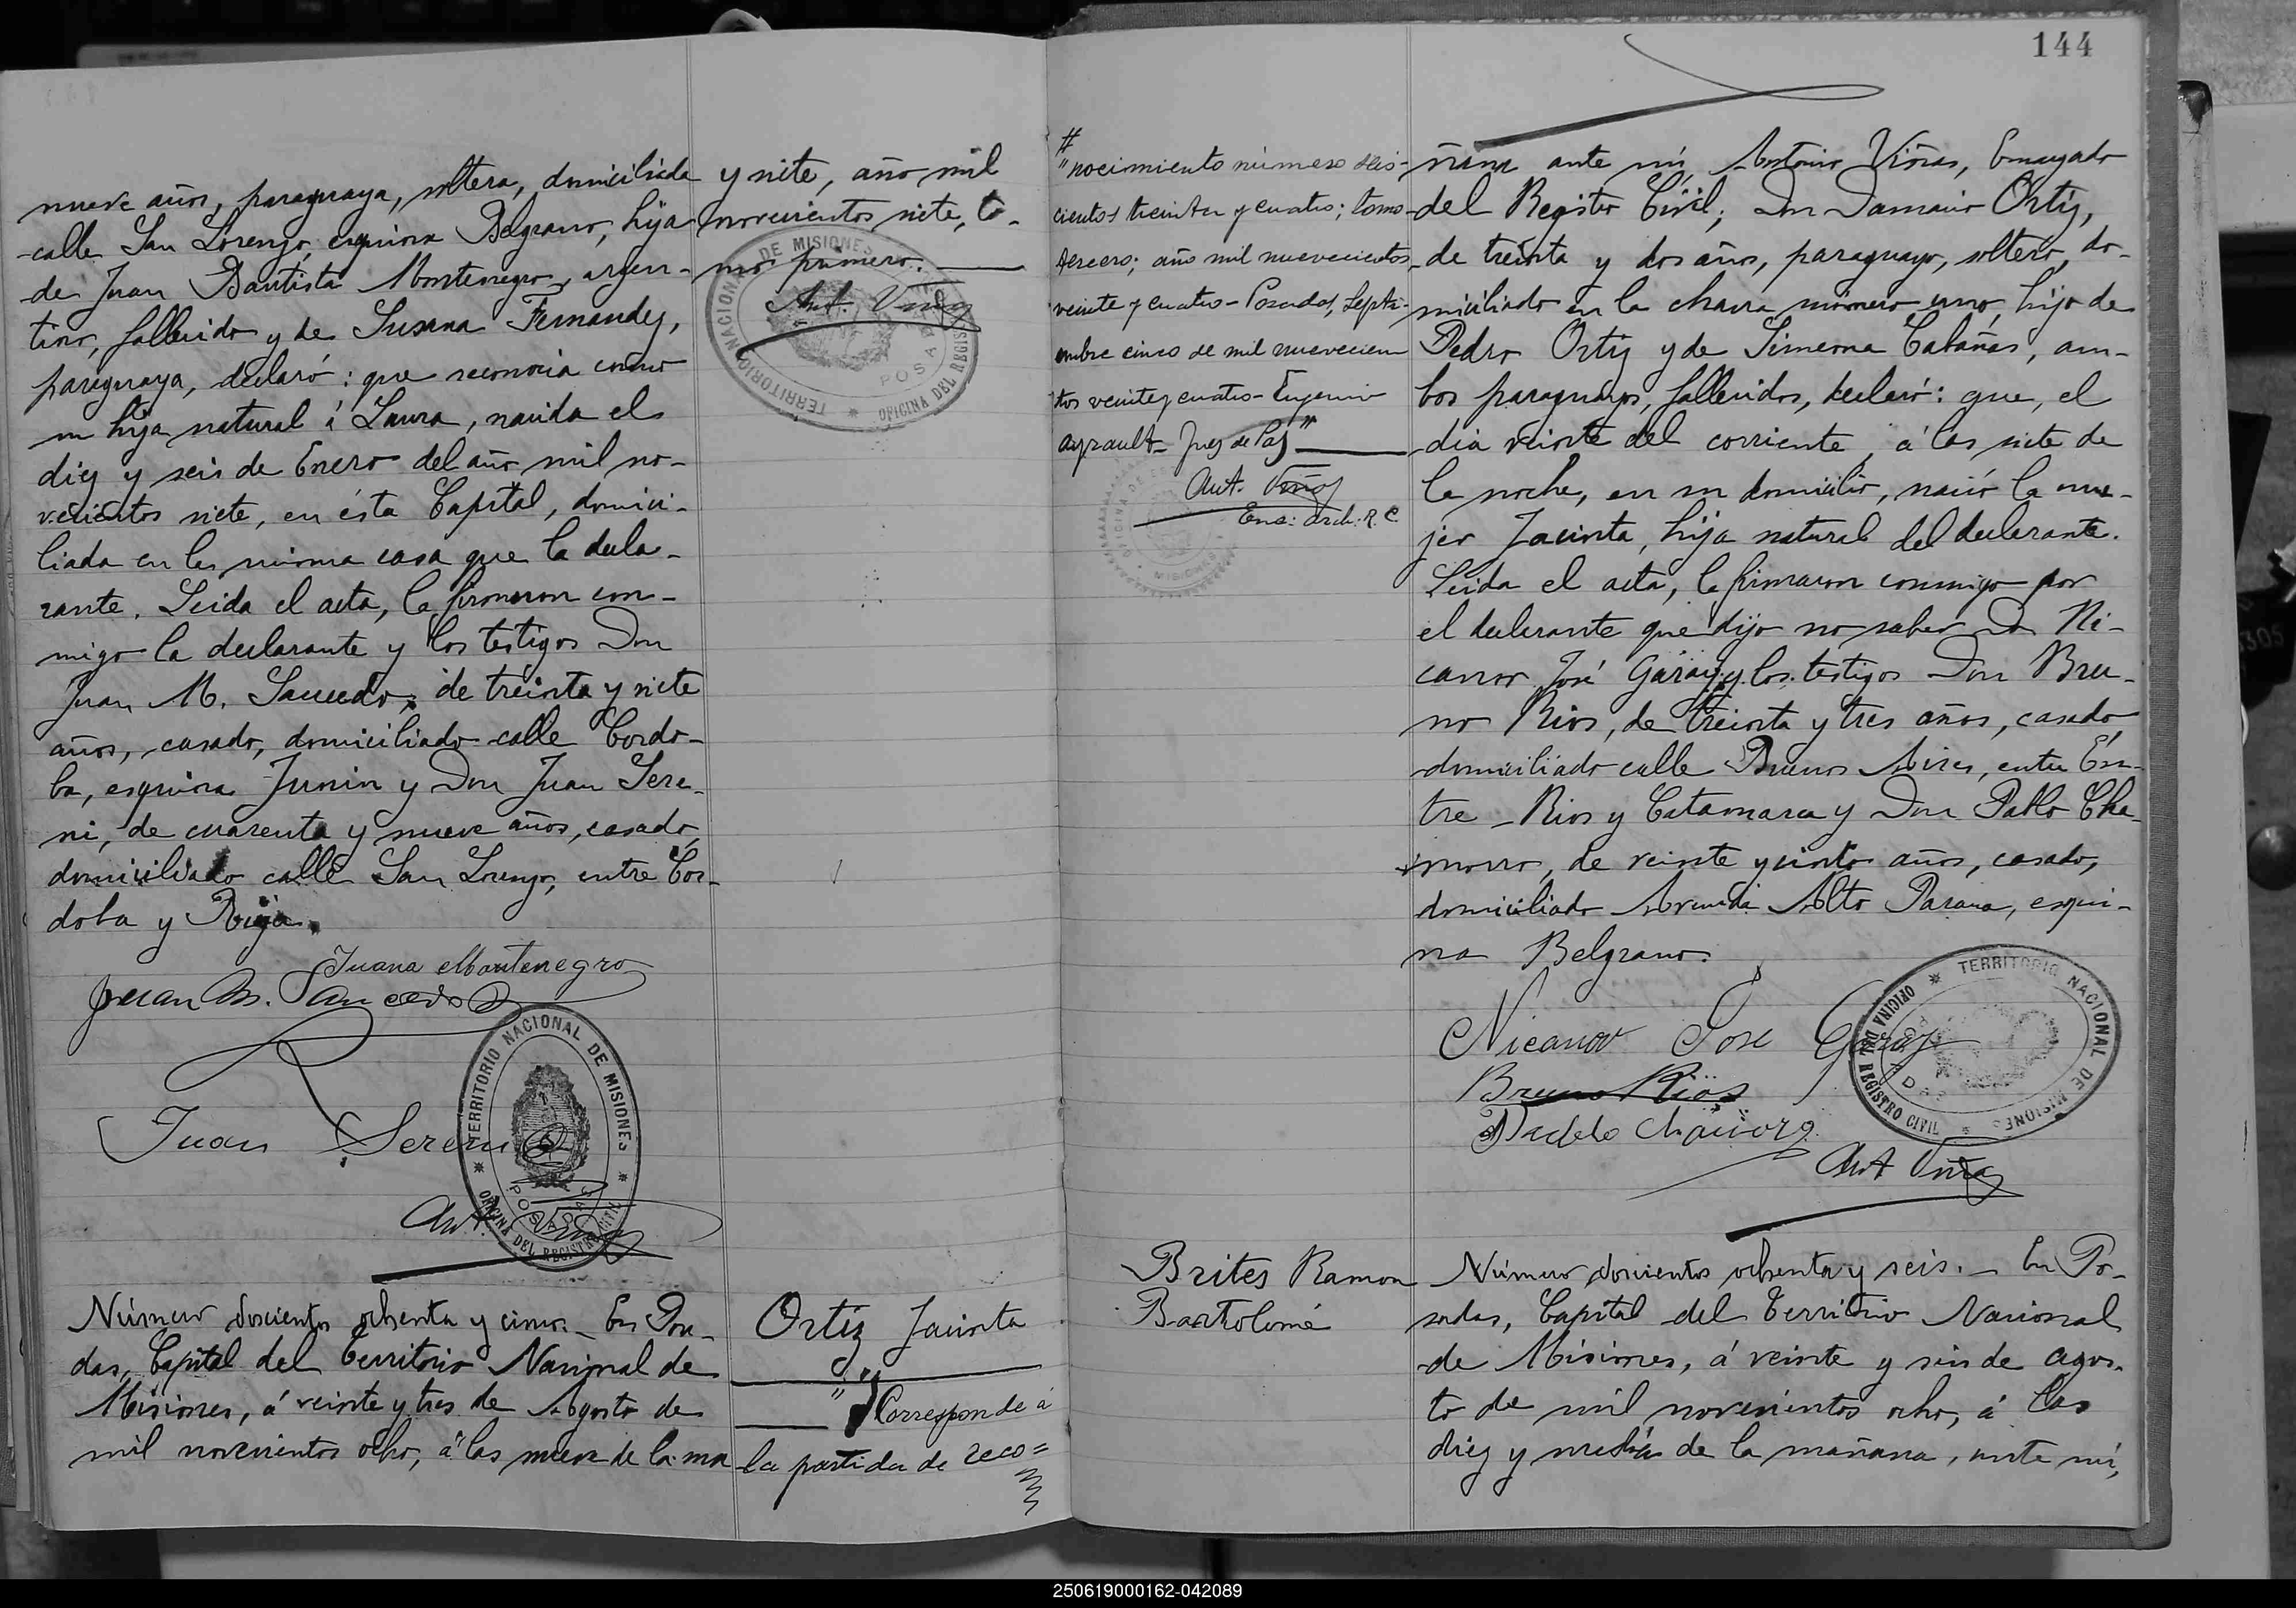 nueve años, paraguaya, soltera, domiciliada
calle San Lorenzo, esquina Belgrano, hija
de Juan Bautista Montenegro, argen-
tino, fallecido y de Susana Fernandez,
paraguaya, declaró: que reconocia como
su hija natural á Laura, nacida el
diez y seis de Enero del año mil no-
vecientos siete, en ésta Capital, domici-
liada en la misma casa que la decla-
rante. Leida el acta, la firmaron con-
migo la declarante y los testigos Don
Juan M. Saucedo, de treinta y siete
años, casado, domiciliado calle Cordo-
ba, esquina Junin y Don Juan Sere-
ni, de cuarenta y nueve años, casado,
domiciliado calle San Lorenzo, entre Cor-
doba y Rioja.
Juana Montenegro
Juan M. Saucedo
Juan Sereni
TERRITORIO NACIONAL DE MISIONES
OFICINA DEL REGISTRO CIVIL
POSADAS
Ant. Viñas
Número doscientos ochenta y cinco. _ En Posa-
das, Capital del Territorio Nacional de
Misiones, á veinte y tres de Agosto de
mil novecientos ocho, á las nueve de la ma
y siete, año mil
novecientos siete, to-
mo primero.
Ant. Viñas
TERRITORIO NACIONAL DE MISIONES
OFICINA DEL REGISTRO
POSADAS
Ortiz Jacinta
" Corresponde á
la partida de reco=
144
#
"nocimiento número seis-
cientos treinta y cuatro; tomo
tercero; año mil nuevecientos
veinte y cuatro - Posadas, Septi-
embre cinco de mil nuevecien
tos veinte y cuatro - Eugenio
Ayrault - Juez de Paz"
Ant. Viñas
Enc: arch. R. C.
OFICINA DE
MISIONES
Brites Ramon
Bartolomé
ñana ante mi, Antonio Viñas, Encargado
del Registro Civil; Don Damacio Ortiz,
de treinta y dos años, paraguayo, soltero, do-
miciliado en la chacra número uno, hijo de
Pedro Ortiz y de Simeona Cabañas, am-
bos paraguayos, fallecidos, declaró: que, el
dia veinte del corriente, á las siete de
la noche, en su domicilio, nació la mu-
jer Jacinta, hija natural del declarante.
Leida el acta, la firmaron conmigo por
el declarante que dijo no saber Don Ni-
canor José Garay y los testigos Don Bru-
no Rios, de treinta y tres años, casado,
domiciliado calle Buenos Aires, entre En-
tre-Rios y Catamarca y Don Pablo Cha-
morro, de veinte y cinco años, casado,
domiciliado Avenida Alto Parana, esqui-
na Belgrano.
Nicanor Jose Garay
Bruno Rios
TERRITORIO NACIONAL DE MISIONES
OFICINA DEL REGISTRO CIVIL
Ant Viñas
Número doscientos ochenta y seis. _ En Po-
sadas, Capital del Territorio Nacional
de Misiones, á veinte y seis de Agos-
to de mil novecientos ocho, á las
diez y media de la mañana, ante mi,
250619000162-042089